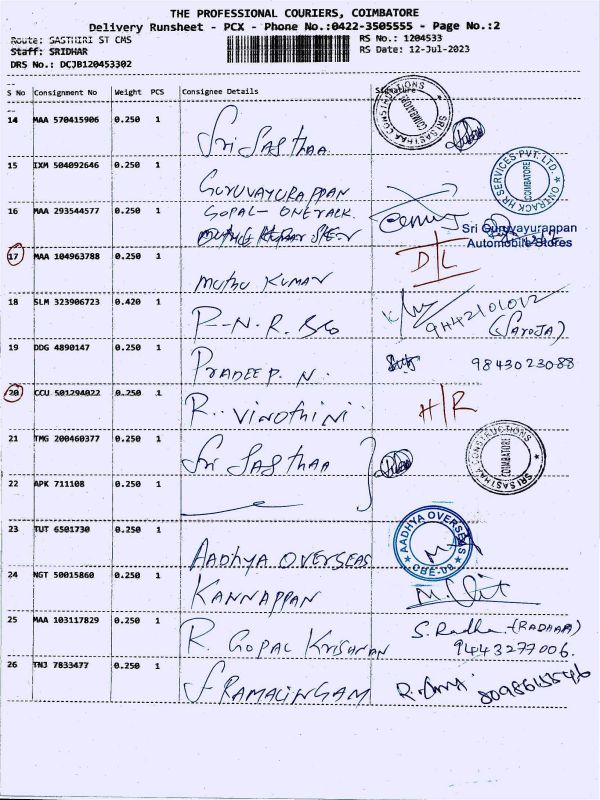 THE PROFESSIONAL COURIERS, COIMBATORE
Delivery Runsheet - PCX - Phone No.:0422-3505555 - Page No.:2
Route: SASTHIRI ST CMS RS No.: 1204533
Staff: SRIDHAR RS Date: 12-Jul-2023
DRS No.: DCJB120453302
S No Consignment No Weight PCS Consignee Details Signature
14 MAA 570415906 0.250 1 Sri Sasthaa
SRI SASTHAA CONSTRUCTIONS COIMBATORE
15 IXM 504092646 0.250 1 GURUVAYURAPPAN
ONTRACK HR SERVICES PVT. LTD. COIMBATORE
16 MAA 293544577 0.250 1 GOPAL - ONETRACK.
Sri Guruvayurappan
Automobile Stores
17 MAA 104963788 0.250 1 MUTHU KUMAR D/L
18 SLM 323906723 0.420 1 P-N.R. Bro 9442101012
(Saroja)
19 DDG 4890147 0.250 1 PRADEEP. N. 98430 23088
20 CCU 501294022 0.250 1 R. VINOTHINI H/R
21 TMG 200460377 0.250 1 Sri SASTHAA
SRI SASTHAA CONSTRUCTIONS COIMBATORE
22 APK 711108 0.250 1
23 TUT 6501730 0.250 1 AADHYA OVERSEAS
AADHYA OVERSEAS CBE-08.
24 NGT 50015860 0.250 1 KANNAPPAN
25 MAA 103117829 0.250 1 R. GOPAL KRISHNAN S. Radha (RADHAA)
9443277006.
26 TNJ 7833477 0.250 1 S RAMALINGAM